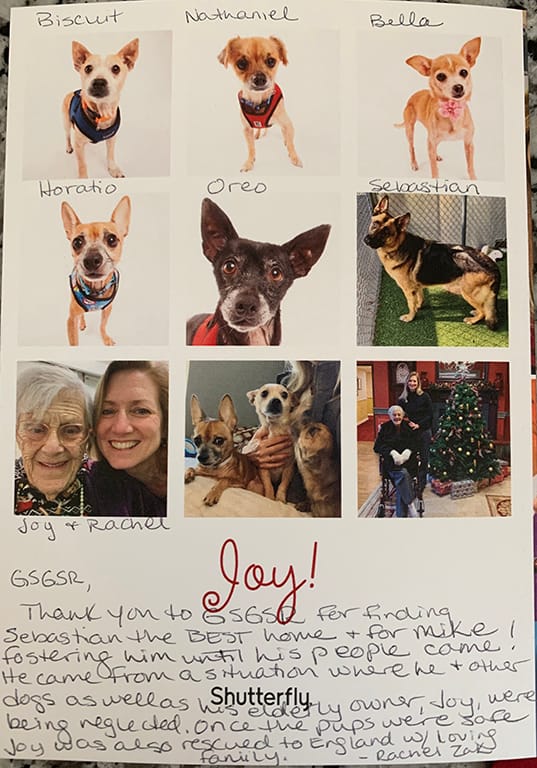 Biscuit Nathaniel Bella
Horatio Oreo Sebastian
Joy & Rachel
Joy!
GSGSR,
Thank you to GSGSR for finding
Sebastian the BEST home + for Mike
fostering him until his people came!
He came from a situation where he + other
dogs as well as his elderly owner, Joy, were
Shutterfly
being neglected. Once the pups were safe
Joy was also rescued to England w/ loving
family. - Rachel